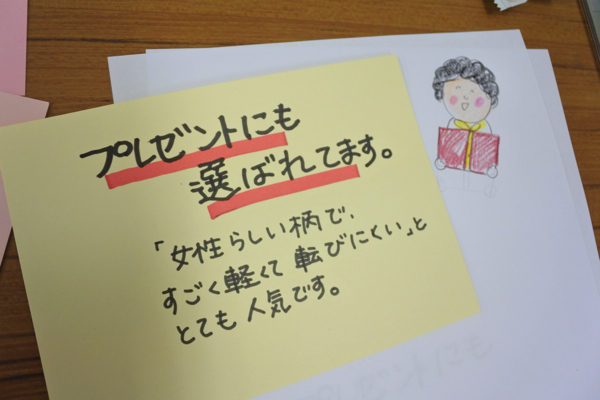 プレゼントにも
選ばれてます。
「女性らしい柄で、
すごく軽くて 転びにくい」と
とても 人気です。